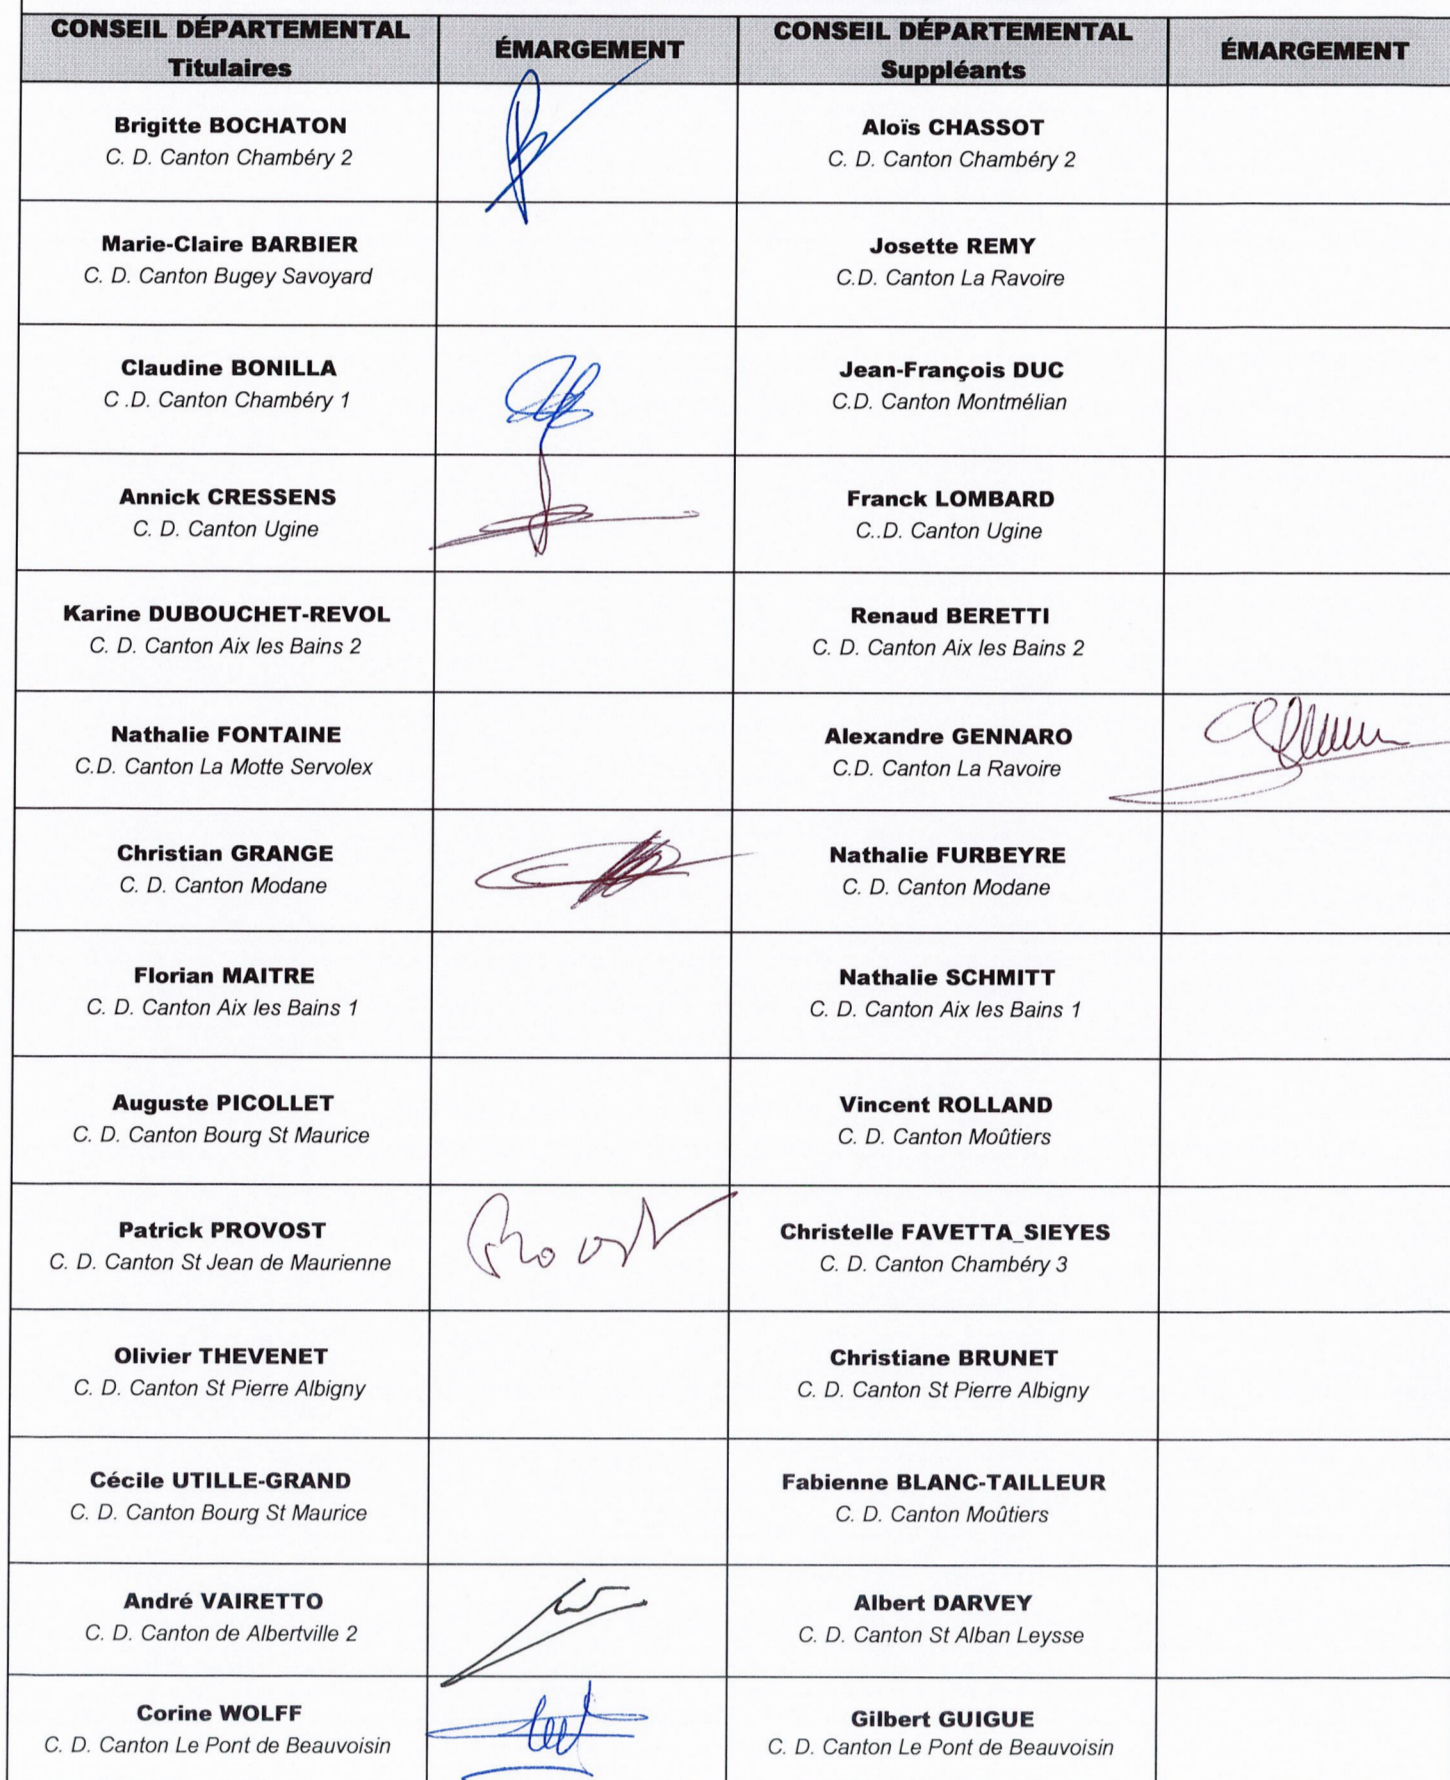 CONSEIL DÉPARTEMENTAL
Titulaires
ÉMARGEMENT
CONSEIL DÉPARTEMENTAL
Suppléants
ÉMARGEMENT
Brigitte BOCHATON
C. D. Canton Chambéry 2
Aloïs CHASSOT
C. D. Canton Chambéry 2
Marie-Claire BARBIER
C. D. Canton Bugey Savoyard
Josette REMY
C.D. Canton La Ravoire
Claudine BONILLA
C .D. Canton Chambéry 1
Jean-François DUC
C.D. Canton Montmélian
Annick CRESSENS
C. D. Canton Ugine
Franck LOMBARD
C..D. Canton Ugine
Karine DUBOUCHET-REVOL
C. D. Canton Aix les Bains 2
Renaud BERETTI
C. D. Canton Aix les Bains 2
Nathalie FONTAINE
C.D. Canton La Motte Servolex
Alexandre GENNARO
C.D. Canton La Ravoire
Christian GRANGE
C. D. Canton Modane
Nathalie FURBEYRE
C. D. Canton Modane
Florian MAITRE
C. D. Canton Aix les Bains 1
Nathalie SCHMITT
C. D. Canton Aix les Bains 1
Auguste PICOLLET
C. D. Canton Bourg St Maurice
Vincent ROLLAND
C. D. Canton Moûtiers
Patrick PROVOST
C. D. Canton St Jean de Maurienne
Provost
Christelle FAVETTA_SIEYES
C. D. Canton Chambéry 3
Olivier THEVENET
C. D. Canton St Pierre Albigny
Christiane BRUNET
C. D. Canton St Pierre Albigny
Cécile UTILLE-GRAND
C. D. Canton Bourg St Maurice
Fabienne BLANC-TAILLEUR
C. D. Canton Moûtiers
André VAIRETTO
C. D. Canton de Albertville 2
Albert DARVEY
C. D. Canton St Alban Leysse
Corine WOLFF
C. D. Canton Le Pont de Beauvoisin
Gilbert GUIGUE
C. D. Canton Le Pont de Beauvoisin